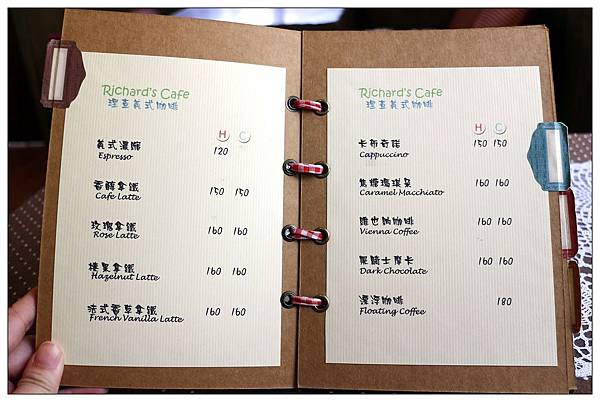 Richard's Cafe
理查義式咖啡
H C
義式濃縮 120
Espresso
香醇拿鐵 150 150
Cafe Latte
玫瑰拿鐵 160 160
Rose Latte
榛果拿鐵 160 160
Hazelnut Latte
法式香草拿鐵 160 160
French Vanilla Latte
Richard's Cafe
理查義式咖啡
H C
卡布奇諾 150 150
Cappuccino
焦糖瑪琪朵 160 160
Caramel Macchiato
維也納咖啡 160 160
Vienna Coffee
黑騎士摩卡 160 160
Dark Chocolate
漂浮咖啡 180
Floating Coffee